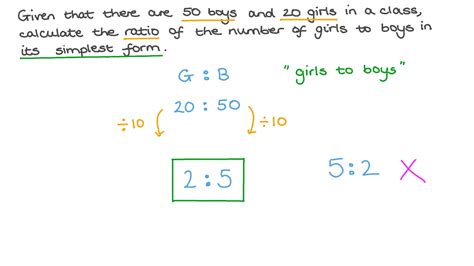 Given that there are 50 boys and 20 girls in a class,
calculate the ratio of the number of girls to boys in
its simplest form.
G : B "girls to boys"
20 : 50
÷10 ÷10
2 : 5 5:2 X